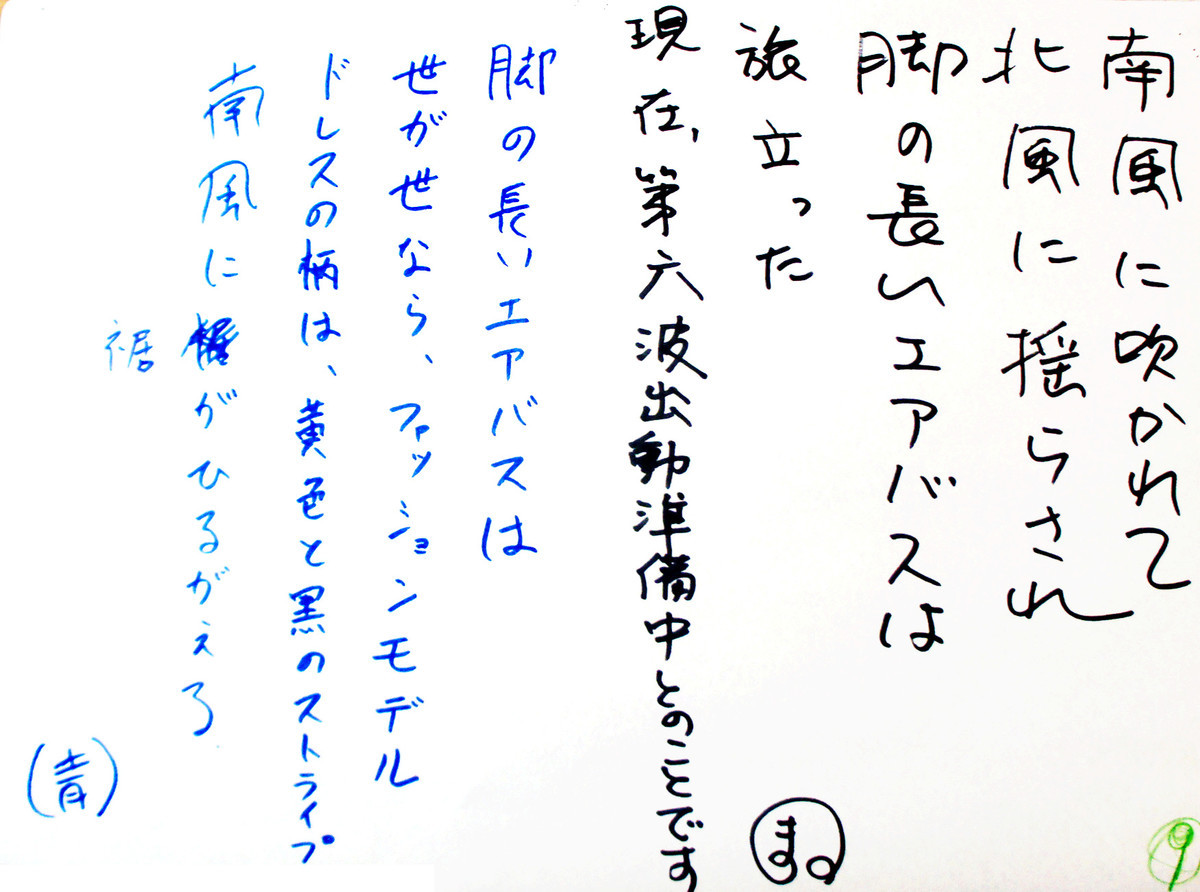 南風に吹かれて
北風に揺らされ
脚の長いエアバスは
旅立った
現在,第六波出動準備中とのことです
まの
脚の長いエアバスは
世が世なら、ファッションモデル
ドレスの柄は、黄色と黒のストライプ
南風に裾がひるがえる
(青)
9